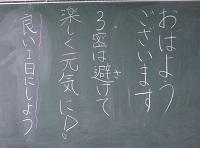 おはよう
ございます
3密は避けて
さ
楽しく元気に♪
良い1日にしよう